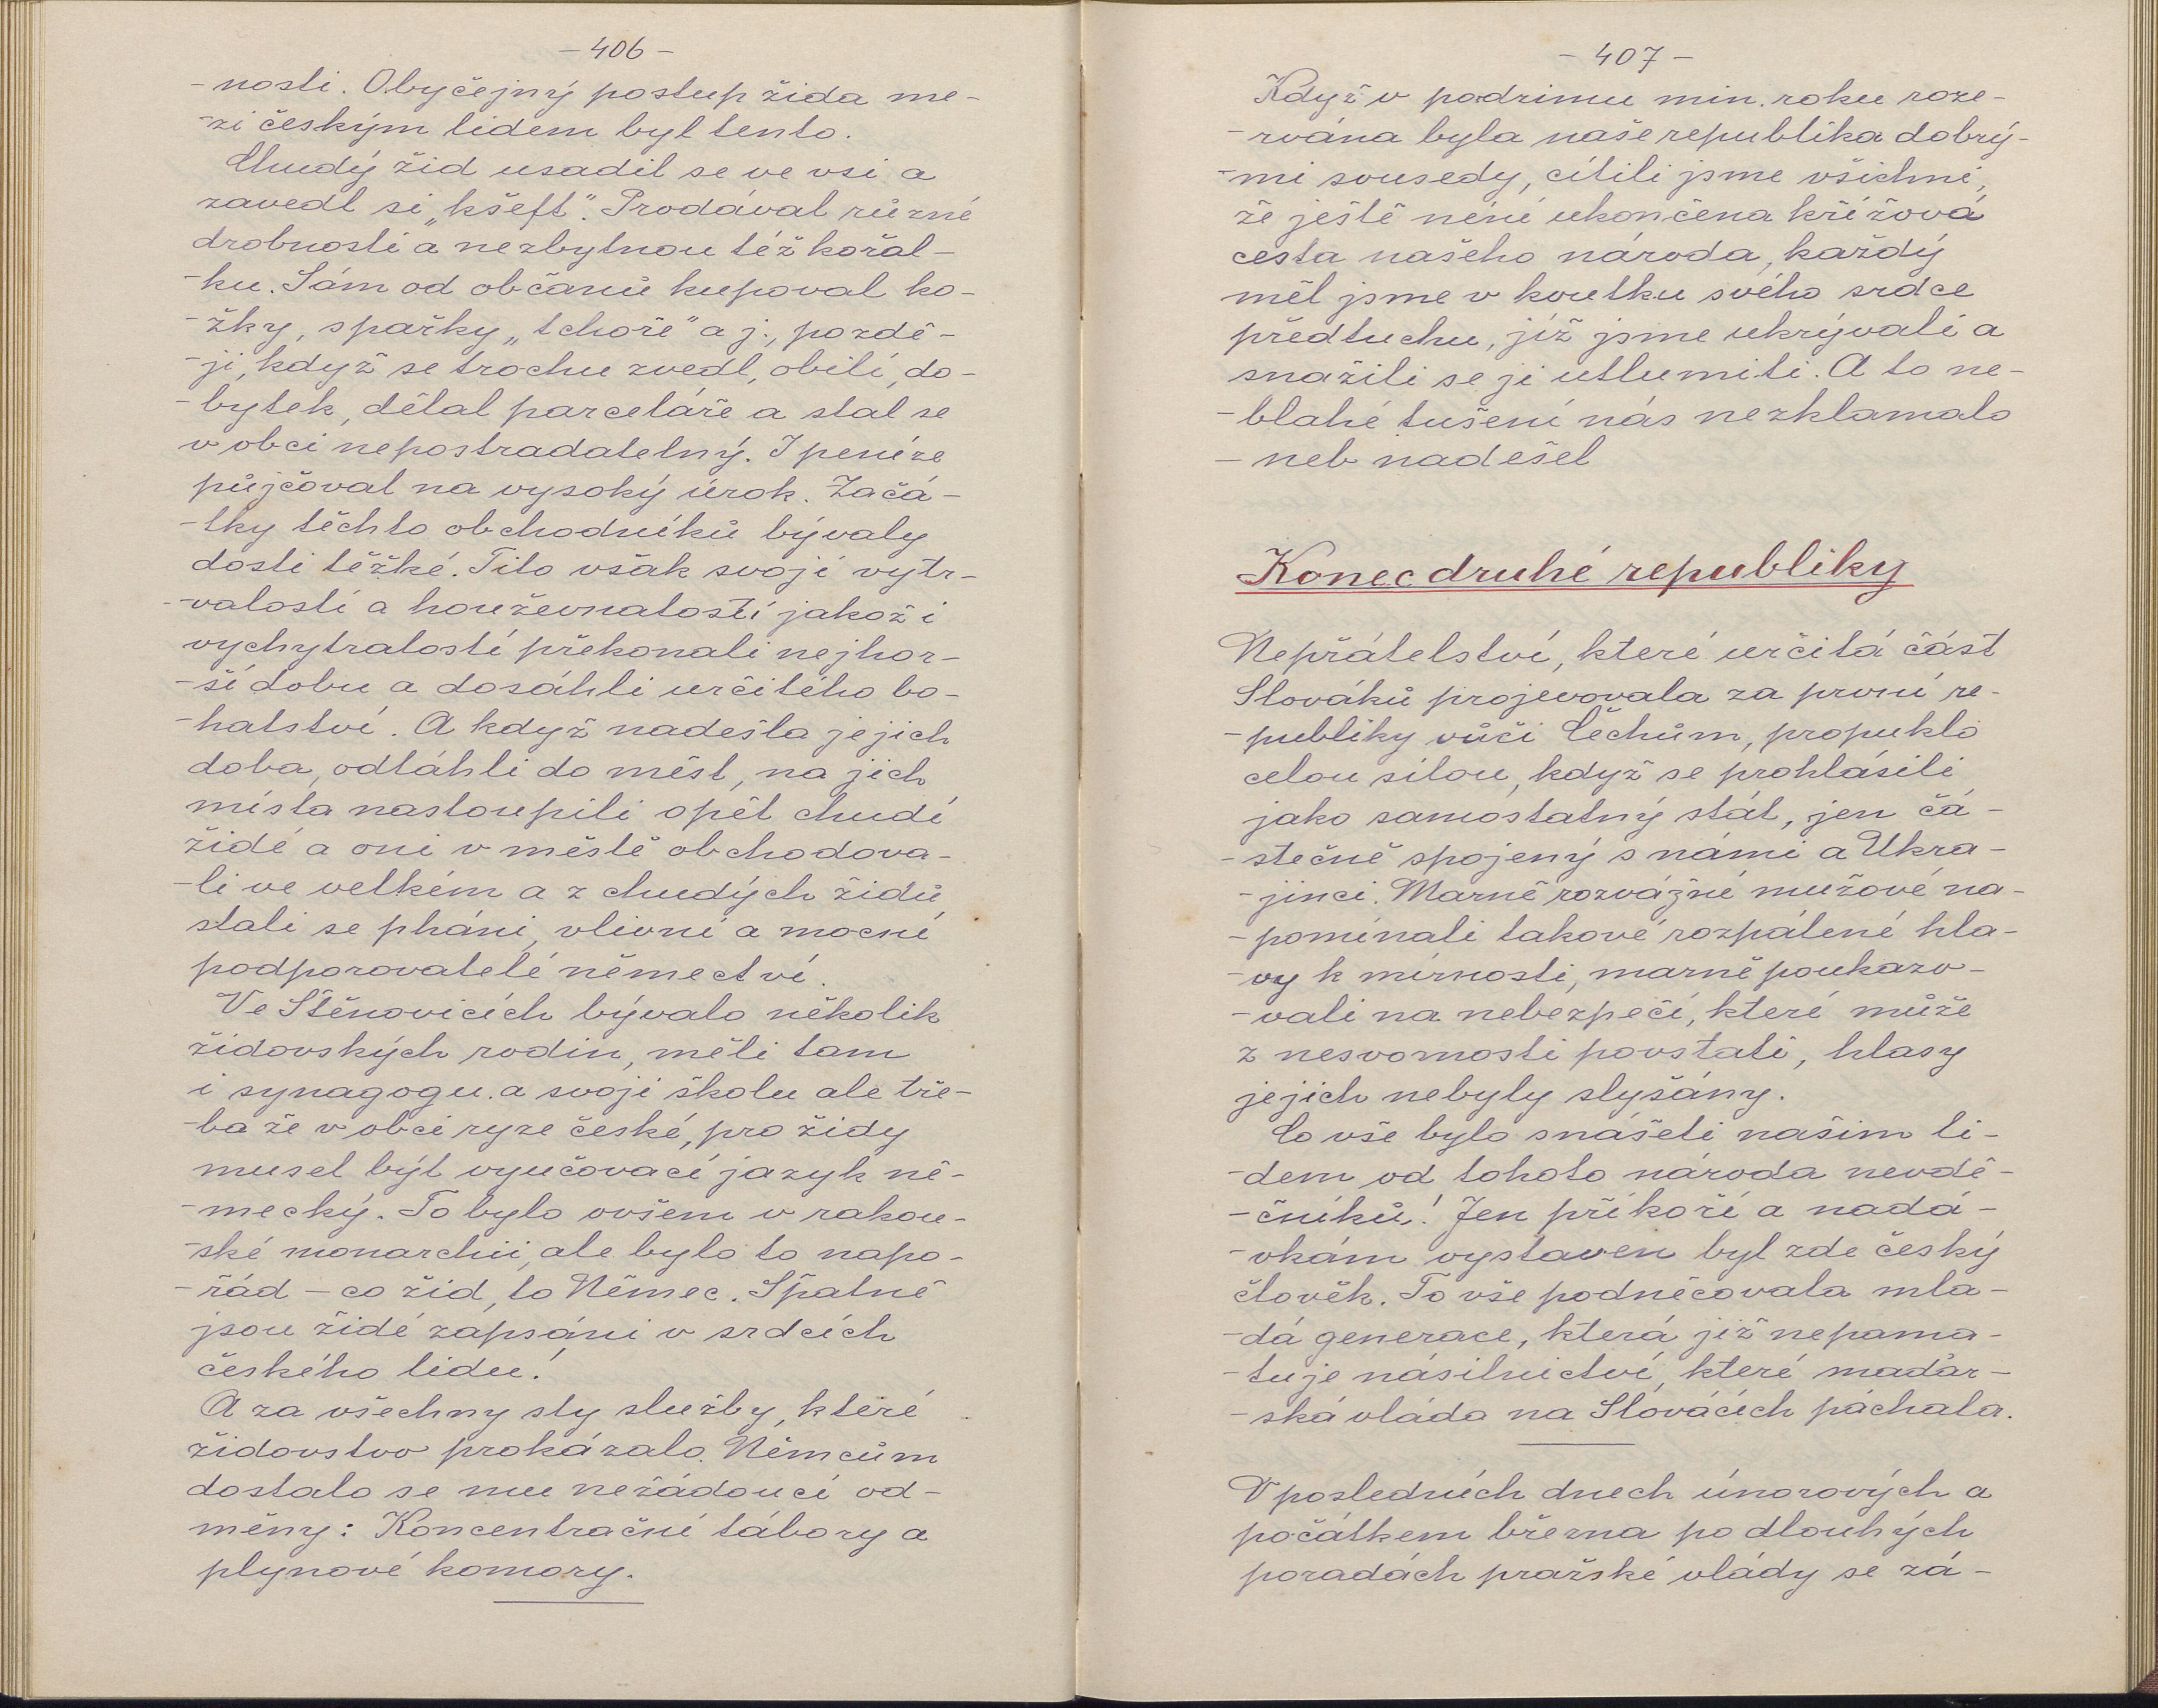 - 406 -
- nosti. Obyčejný postup žida me-
- zi českým lidem byl tento.
Chudý žid usadil se ve vsi a
zavedl si „kšeft“. Prodával různé
drobnosti a nezbytnou též kořal-
- ku. Sám od občanů kupoval ko-
- žky, spařky „tchoře“ a j., pozdě-
- ji, když se trochu zvedl, obilí, do-
- bytek, dělal parceláře a stal se
v obci nepostradatelný. I peníze
půjčoval na vysoký úrok. Začá-
- tky těchto obchodníků bývaly
dosti těžké. Tito však svojí vytr-
- valostí a houževnatostí jakož i
vychytralostí překonali nejhor-
- ší dobu a dosáhli určitého bo-
- hatství. A když nadešla jejich
doba, odtáhli do měst, na jich
místa nastoupili opět chudí
židé a oni v městě obchodova-
- li ve velkém a z chudých židů
stali se pháni, vlivní a mocní
podporovatelé němectví.
Ve Štěnovicích bývalo několik
židovských rodin, měli tam
i synagogu. a svoji školu ale tře-
- ba že v obci ryze české, pro židy
musel být vyučovací jazyk ně-
- mecký. To bylo ovšem v rakou-
- ské monarchii, ale bylo to napo-
- řád - co žid, to Němec. Špatně
jsou židé zapsáni v srdcích
českého lidu!
A za všechny sly služby, které
židovstvo prokázalo. Němcům
dostalo se mu nežádoucí od-
měny: Koncentrační tábory a
plynové komory.
- 407 -
Když v podzimu min. roku roze-
- rvána byla naše republika dobrý-
- mi sousedy, cítili jsme všichni,
že ještě není ukončena křížová
cesta našeho národa, každý
měl jsme v koutku svého srdce
předtuchu, již jsme ukrývali a
snažili se ji utlumiti. A to ne-
- blahé tušení nás nezklamalo
- neb nadešel
Konec druhé republiky
Nepřátelství, které určitá část
Slováků projevovala za první re-
- publiky vůči Čechům, propuklo
celou silou, když se prohlásili
jako samostatný stát, jen čá-
- stečně spojený s námi a Ukra-
- jinci. Marně rozvážní mužové na-
- pomínali takové rozpálené hla-
- vy k mírnosti, marně poukazo-
- vali na nebezpečí, které může
z nesvornosti povstati, hlasy
jejich nebyly slyšány.
Co vše bylo snášeti našim li-
- dem od tohoto národa nevdě-
- čníků! Jen příkoří a nadá-
- vkám vystaven byl zde český
člověk. To vše podněcovala mla-
- dá generace, která již nepama-
- tuje násilnictví, které maďar-
- ská vláda na Slovácích páchala.
V posledních dnech únorových a
počátkem března po dlouhých
poradách pražské vlády se zá-